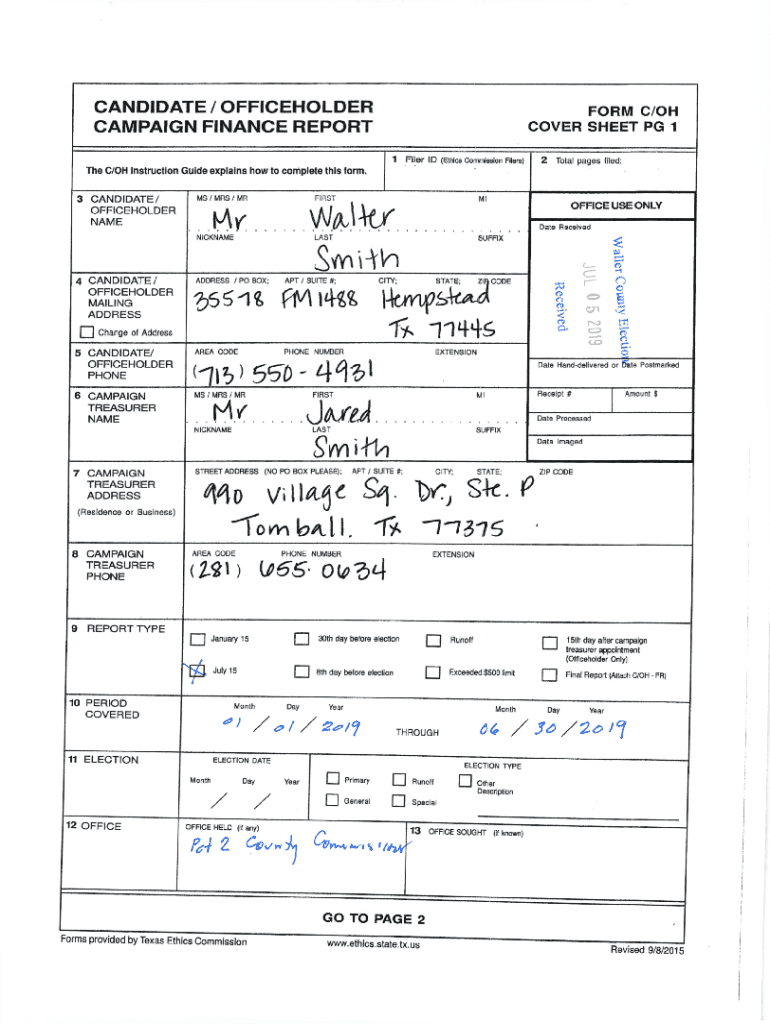 CANDIDATE / OFFICEHOLDER
CAMPAIGN FINANCE REPORT
FORM C/OH
COVER SHEET PG 1
The C/OH Instruction Guide explains how to complete this form.
1 Filer ID (Ethics Commission Filers)
2 Total pages filed:
3 CANDIDATE / OFFICEHOLDER NAME
MS / MRS / MR FIRST MI
Mr Walter
NICKNAME LAST SUFFIX
Smith
OFFICE USE ONLY
Date Received
Waller County Election
JUL 05 2019
Received
4 CANDIDATE / OFFICEHOLDER MAILING ADDRESS
Change of Address
ADDRESS / PO BOX; APT / SUITE #; CITY; STATE; ZIP CODE
35578 FM 1488 Hempstead
Tx 77445
5 CANDIDATE/ OFFICEHOLDER PHONE
AREA CODE PHONE NUMBER EXTENSION
(713) 550-4931
Date Hand-delivered or Date Postmarked
6 CAMPAIGN TREASURER NAME
MS / MRS / MR FIRST MI
Mr Jared
NICKNAME LAST SUFFIX
Smith
Receipt # Amount $
Date Processed
Date Imaged
7 CAMPAIGN TREASURER ADDRESS
(Residence or Business)
STREET ADDRESS (NO PO BOX PLEASE); APT / SUITE #; CITY; STATE; ZIP CODE
990 Village Sq. Dr., Ste. P
Tomball. Tx 77375
8 CAMPAIGN TREASURER PHONE
AREA CODE PHONE NUMBER EXTENSION
(281) 655-0634
9 REPORT TYPE
January 15 30th day before election Runoff 15th day after campaign treasurer appointment (Officeholder Only)
July 15 8th day before election Exceeded $500 limit Final Report (Attach C/OH - FR)
10 PERIOD COVERED
Month Day Year Month Day Year
01 / 01 / 2019 THROUGH 06 / 30 / 2019
11 ELECTION
ELECTION DATE
Month Day Year
/ /
ELECTION TYPE
Primary Runoff Other Description
General Special
12 OFFICE
OFFICE HELD (if any)
Pct 2 County Commissioner
13 OFFICE SOUGHT (if known)
GO TO PAGE 2
Forms provided by Texas Ethics Commission www.ethics.state.tx.us Revised 9/8/2015